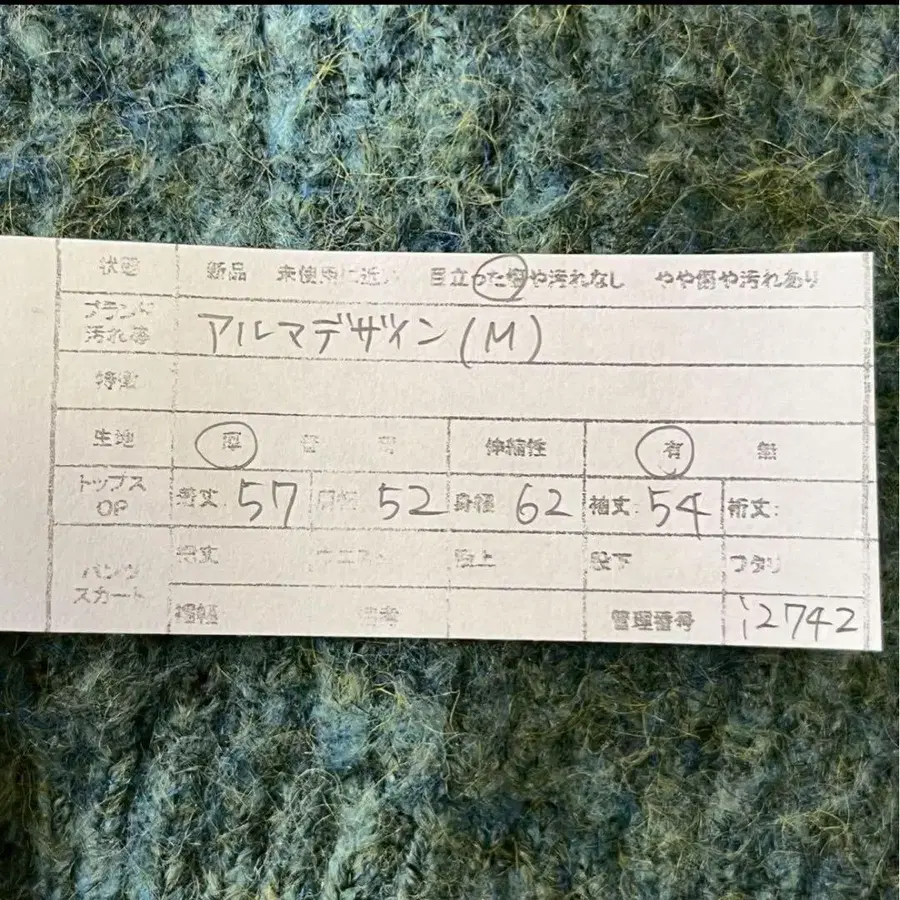 状態 新品 未使用に近い 目立った傷や汚れなし やや傷や汚れあり
ブランド
汚れ等 アルマデザイン(M)
特徴
生地 厚 普 薄 伸縮性 有 無
トップス
OP 着丈: 57 肩幅 52 身幅 62 袖丈: 54 裄丈:
パンツ
スカート 総丈 ウエスト 股上 股下 ワタリ
裾幅 備考 管理番号 i2742